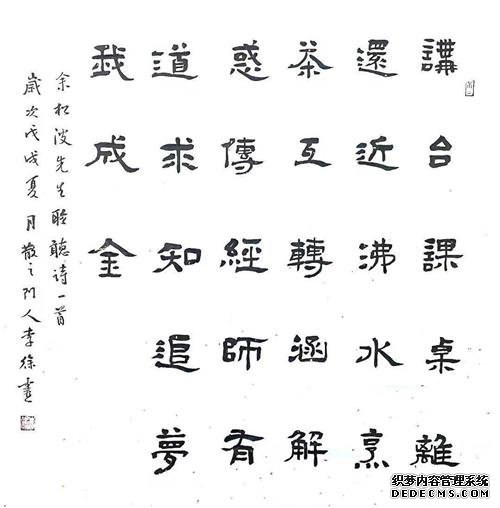 講台課桌離
還近沸水烹
茶互轉涵解
惑傳經師有
道求知追夢
我成金
余松波先生聆聽诗一首
歲次戊戌夏月散之门人李徐書
织梦内容管理系统
DEDECMS.COM